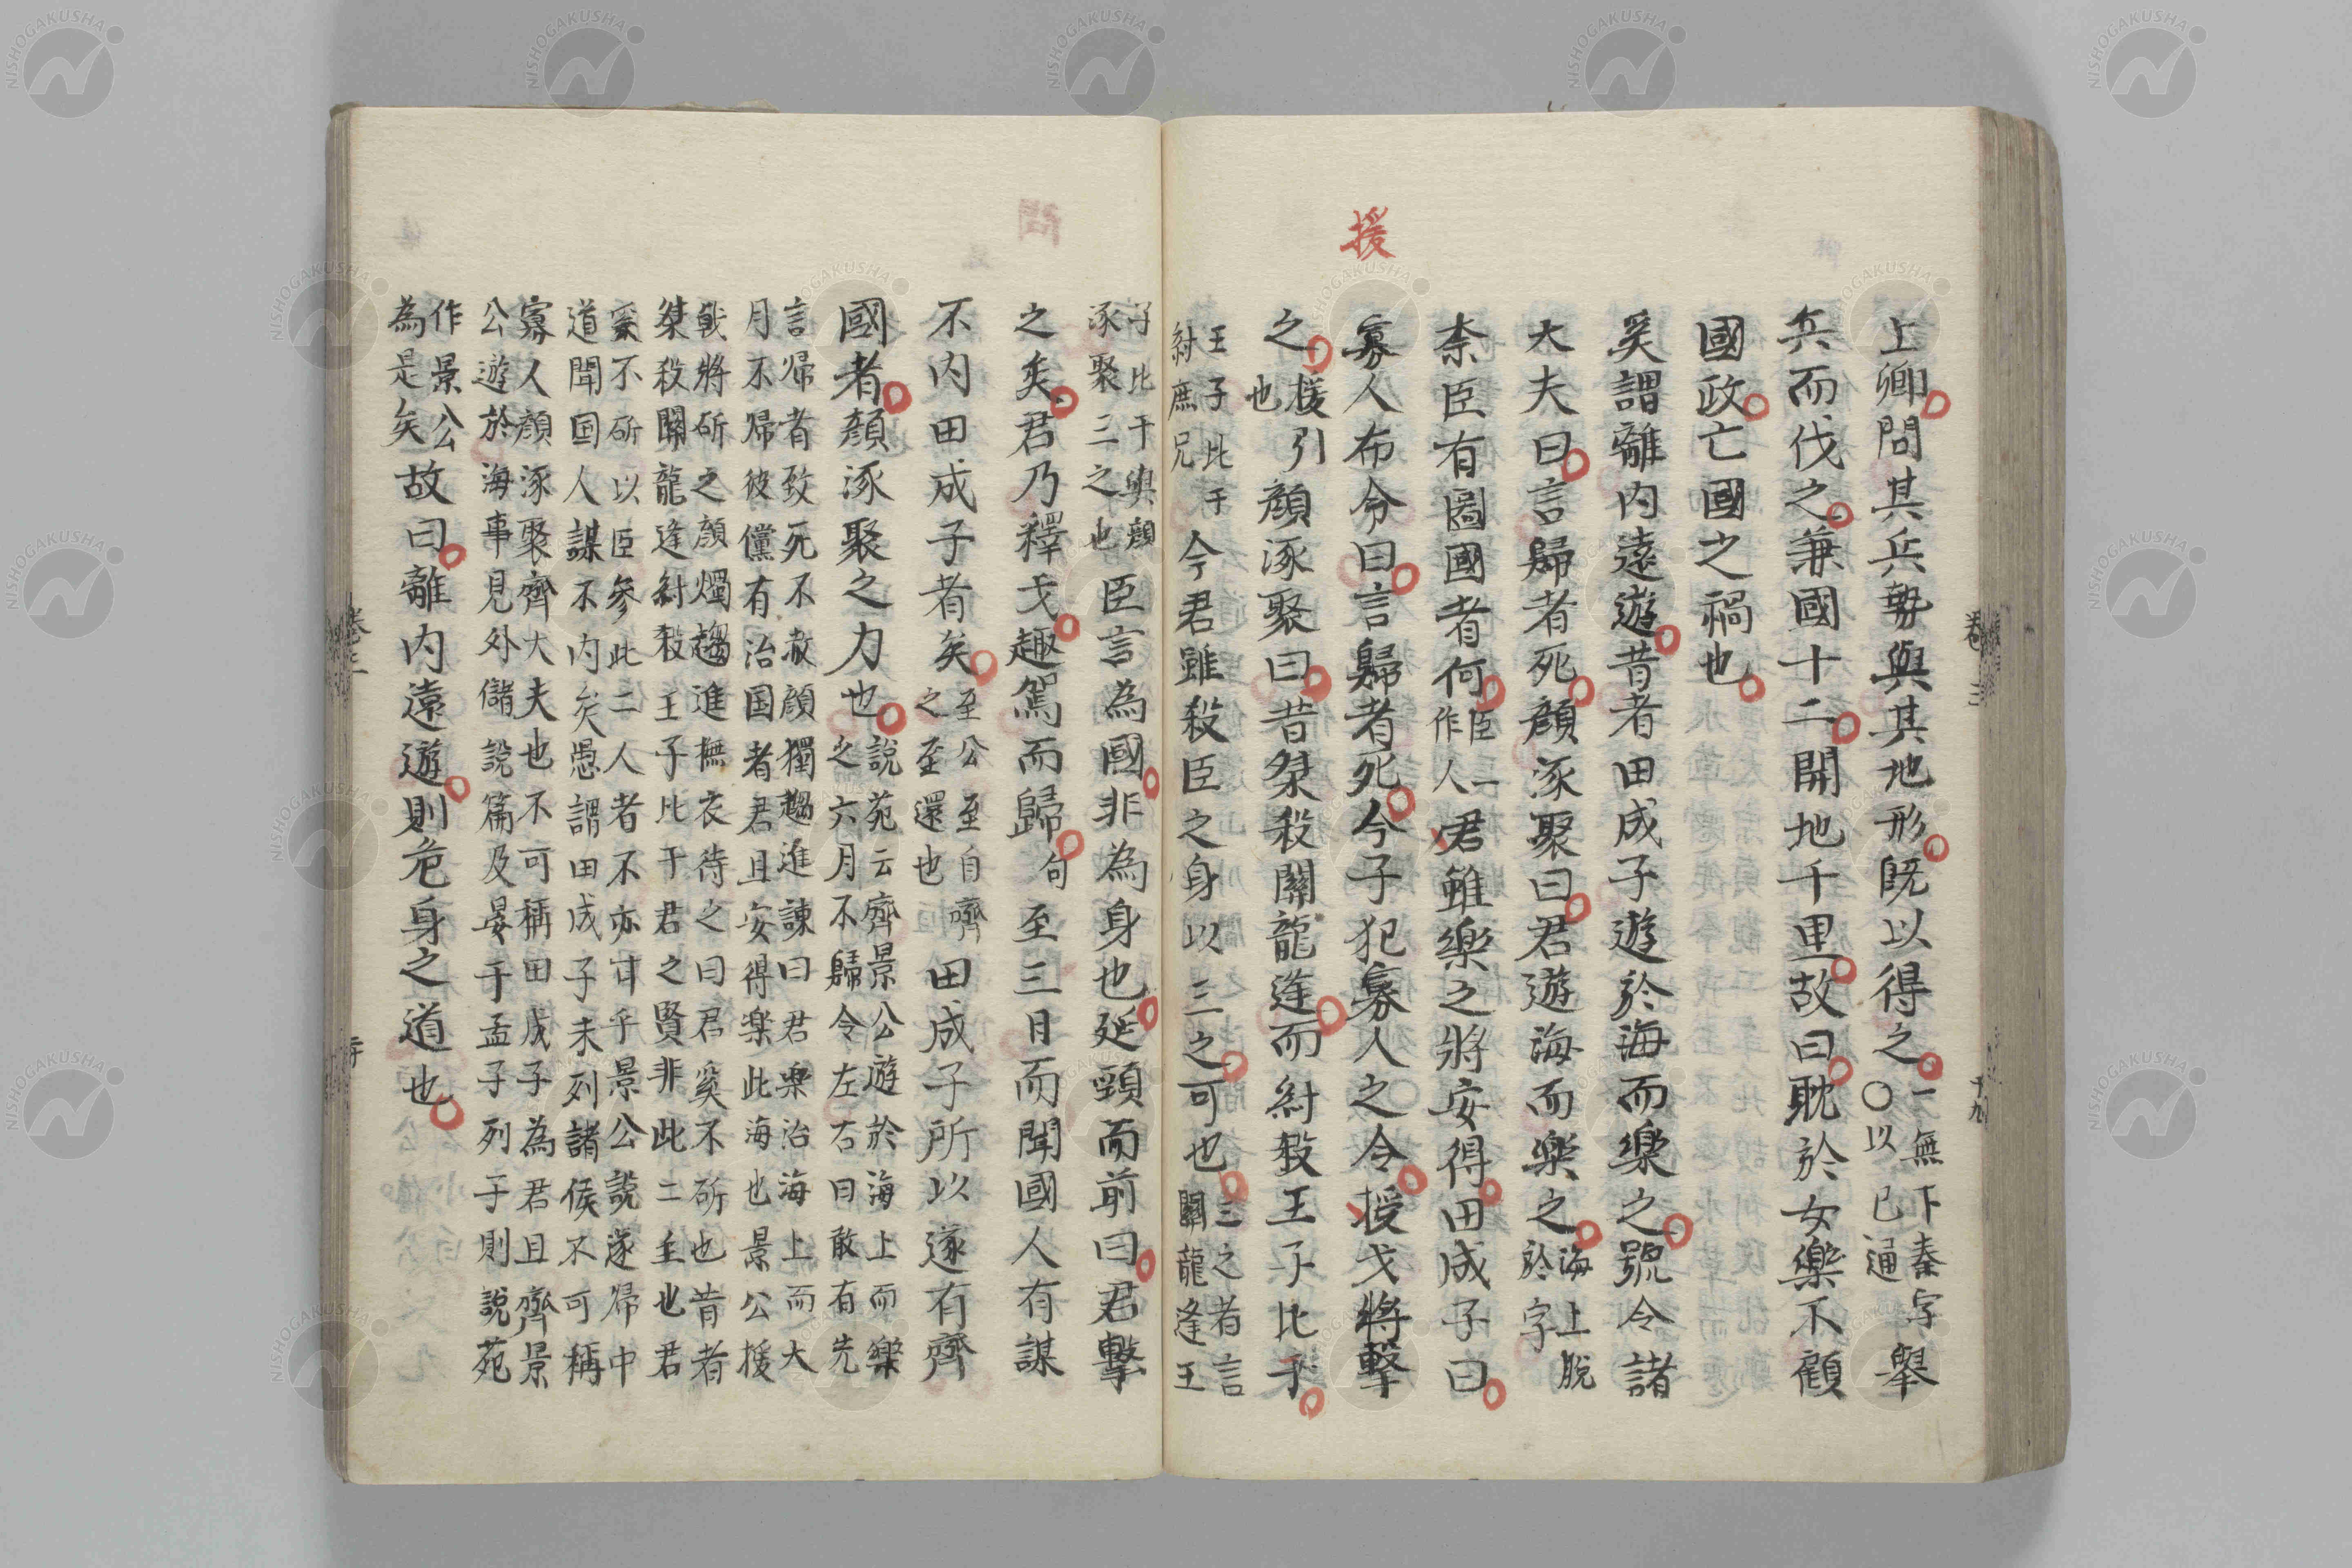 援
上卿問其兵勢與其地形既以得之一無下秦字○以已通舉
兵而伐之兼國十二開地千里故曰耽於女樂不顧
國政亡國之禍也
奚謂離内遠遊昔者田成子遊於海而樂之號令諸
大夫曰言歸者死顔涿聚曰君遊海而樂之海上脱於字
柰臣有圖國者何臣一作人君雖樂之將安得田成子曰
寡人布令曰言歸者死今子犯寡人之令援戈將撃
之援引也顔涿聚曰昔桀殺關龍逢而紂殺王子比干
今君雖殺臣之身以三之可也三之者言關龍逢王
王子比干紂庶兄
子比干與顔涿聚三之也臣言為國非為身也延頸而前曰君撃
之矣君乃釋戈趣駕而歸句至三日而聞國人有謀
不内田成子者矣至公至自齊之至還也田成子所以遂有齊
國者顔涿聚之力也説苑云齊景公遊於海上而樂之六月不歸令左右曰敢有先
言帰者致死不赦顔獨趨進諫曰君樂治海上而大
月不帰彼儻有治国者君且安得楽此海也景公援
戟將斫之顔燭趨進撫衣待之曰君奚不斫也昔者
桀殺關龍逢紂殺王子比干君之賢非此二主也君
奚不斫以臣參此二人者不亦可乎景公説遂帰中
道聞国人謀不内矣愚謂田成子未列諸侯不可稱
寡人顔涿聚齊大夫也不可稱田成子為君且齊景
公遊於海事見外儲説篇及晏子孟子列子則説苑
作景公為是矣故曰離内遠遊則危身之道也
卷三
十九
卷三